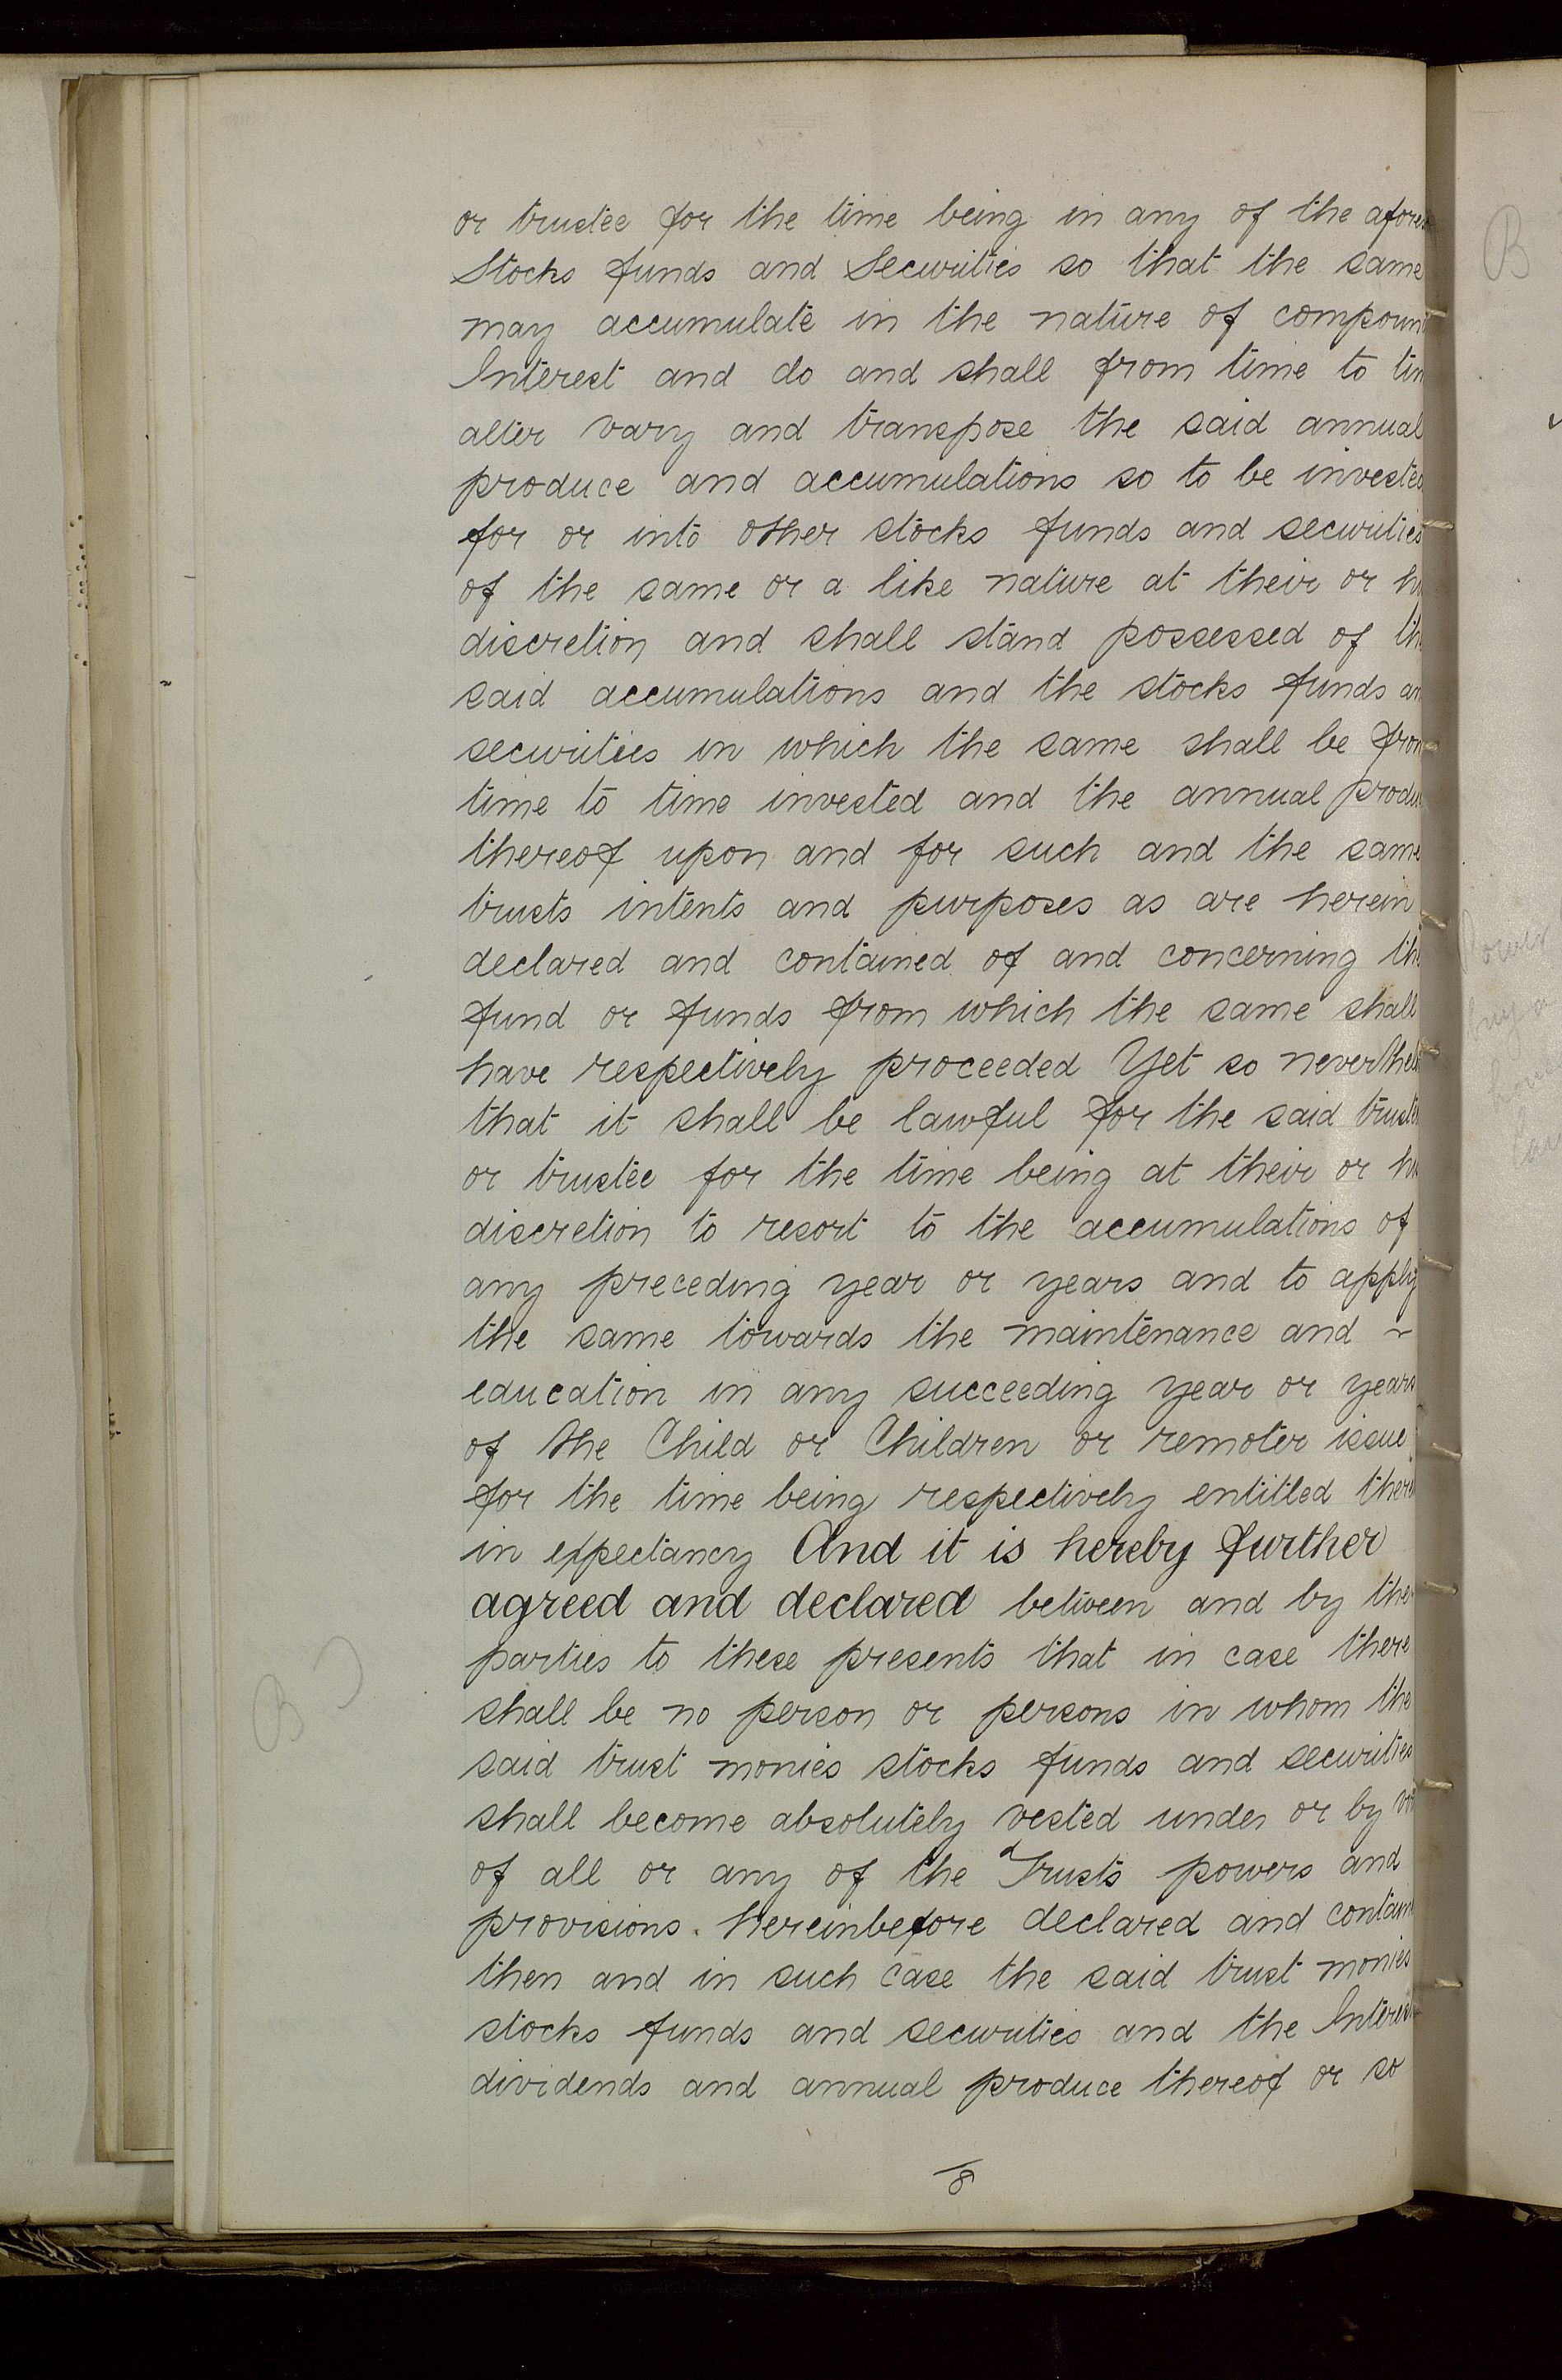 or trustee for the time being in any of the afores
Stocks funds and Securities so that the same
may accumulate in the nature of compoun
Interest and do and shall from time to tim
alter vary and transpose the said annual
produce and accumulations so to be invested
for or into other stocks funds and securities
of the same or a like nature at their or hi
discretion and shall stand possessed of th
said accumulations and the stocks funds an
securities in which the same shall be from
time to time invested and the annual produ
thereof upon and for such and the same
trusts intents and purposes as are herein
declared and contained of and concerning the
fund or funds from which the same shall
have respectively proceeded Yet so neverthele
that it shall be lawful for the said truste
or trustee for the time being at their or hi
discretion to resort to the accumulations of
any preceding year or years and to apply
the same towards the maintenance and ~
education in any succeeding year or years
of the Child or Children or remoter issue
for the time being respectively entitled there
in expectancy And it is hereby further
agreed and declared between and by the
parties to these presents that in case there
shall be no person or persons in whom the
said trust monies stocks funds and securities
shall become absolutely vested under or by vir
of all or any of the Trusts powers and
provisions hereinbefore declared and contain
then and in such case the said trust monies
stocks funds and securities and the Interest
dividends and annual produce thereof or so
8
B
B
Power
buy a